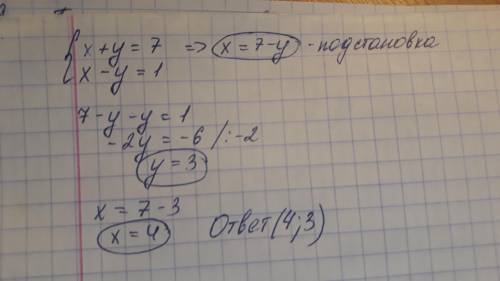 { x + y = 7 => x = 7 - y - подстановка
x - y = 1
7 - y - y = 1
-2y = -6 /: -2
y = 3
x = 7 - 3
x = 4 Ответ (4; 3)